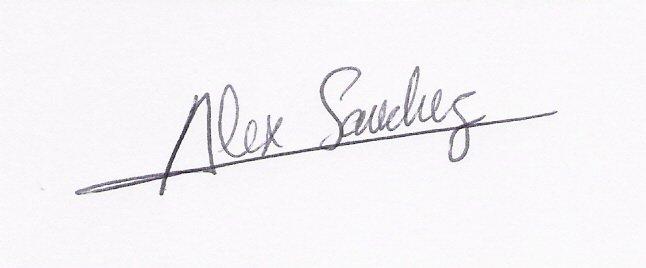 Alex Sanchez